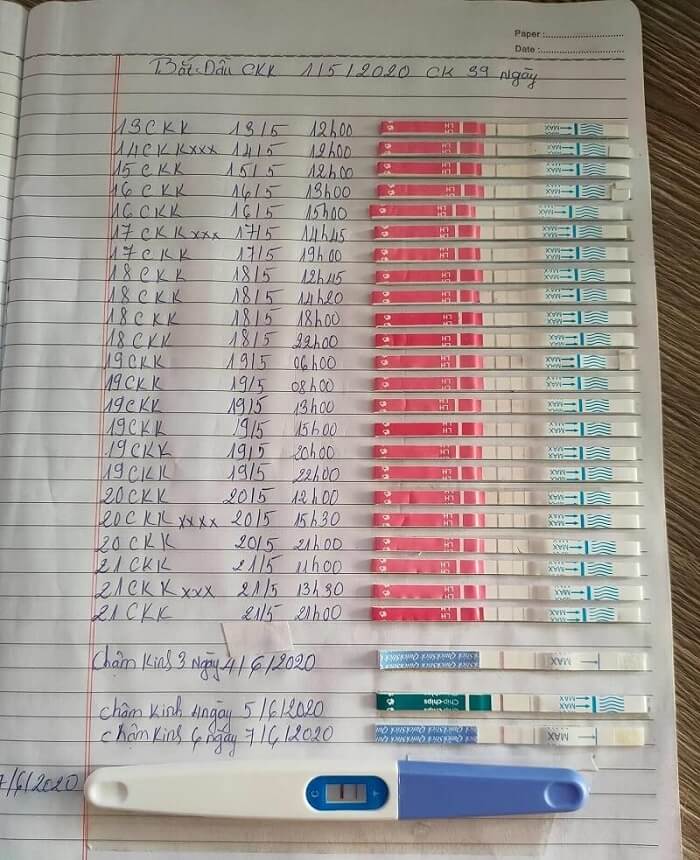 Paper :
Date :
Bắt Dầu CKK 1/5/2020 CK 39 ngày
13CKK 13/5 12h00
14CKKxxx 14/5 12h00
15 CKK 15/5 12h00
16 CKK 16/5 13h00
16 CKK 16/5 15h00
17 CKKxxx 17/5 14h45
17 CKK 17/5 19h00
18 CKK 18/5 12h45
18 CKK 18/5 14h20
18 CKK 18/5 18h00
18 CKK 18/5 22h00
19 CKK 19/5 06h00
19CKK 19/5 08h00
19CKK 19/5 13h00
19CKK 19/5 15h00
19 CKK 19/5 20h00
19 CKK 19/5 22h00
20 CKK 20/5 12h00
20 CKK xxxx 20/5 15h30
20 CKK 20/5 21h00
21 CKK 21/5 11h00
21 CKK xxx 21/5 13h30
21 CKK 21/5 21h00
chậm Kinh 3 ngày 4/6/2020
QuickStick MAX
chậm Kinh 4ngày 5/6/2020
Chip-chips MAX
chậm Kinh 6 ngày 7/6/2020
QuickStick MAX
7/6/2020
C T